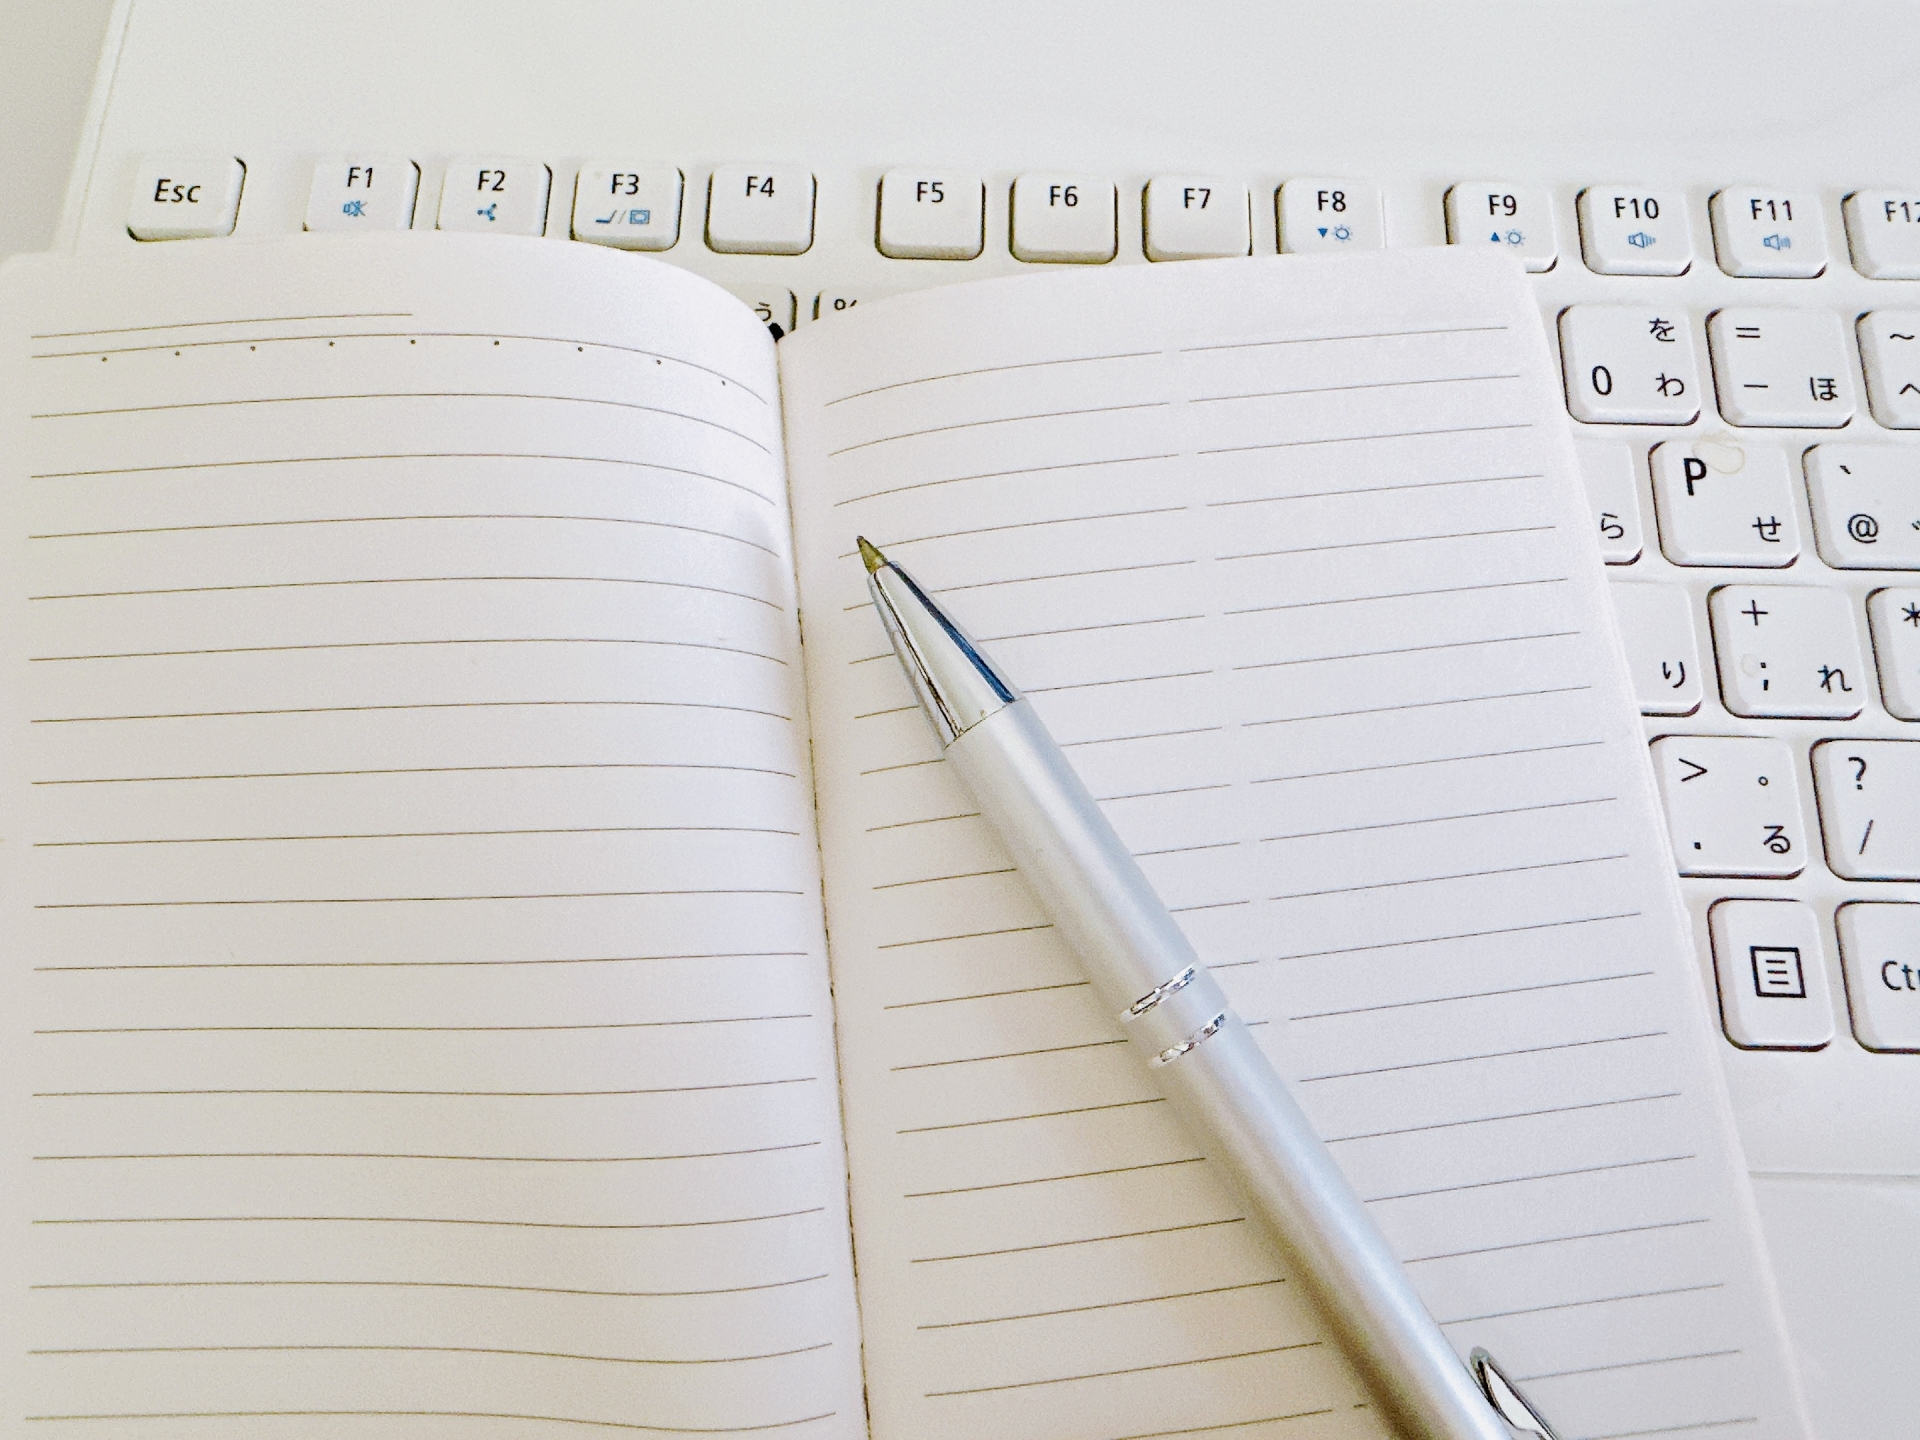 Esc F1 F2 F3 F4 F5 F6 F7 F8 F9 F10 F11 F12
う %
0 を わ = − ほ ~ へ
ら P せ ` @
り + ; れ *
> 。 . る ? /
Ctr